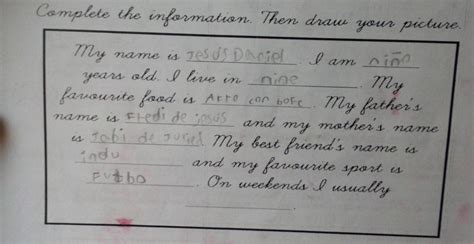 Complete the information. Then draw your picture.
My name is Jesus Daniel. I am niño
years old. I live in nine. My
favourite food is Arro con. My father's
name is Fredi de Jesus and my mother's name
is de. My best friend's name is
indu and my favourite sport is
Futbo. On weekends I usually
.